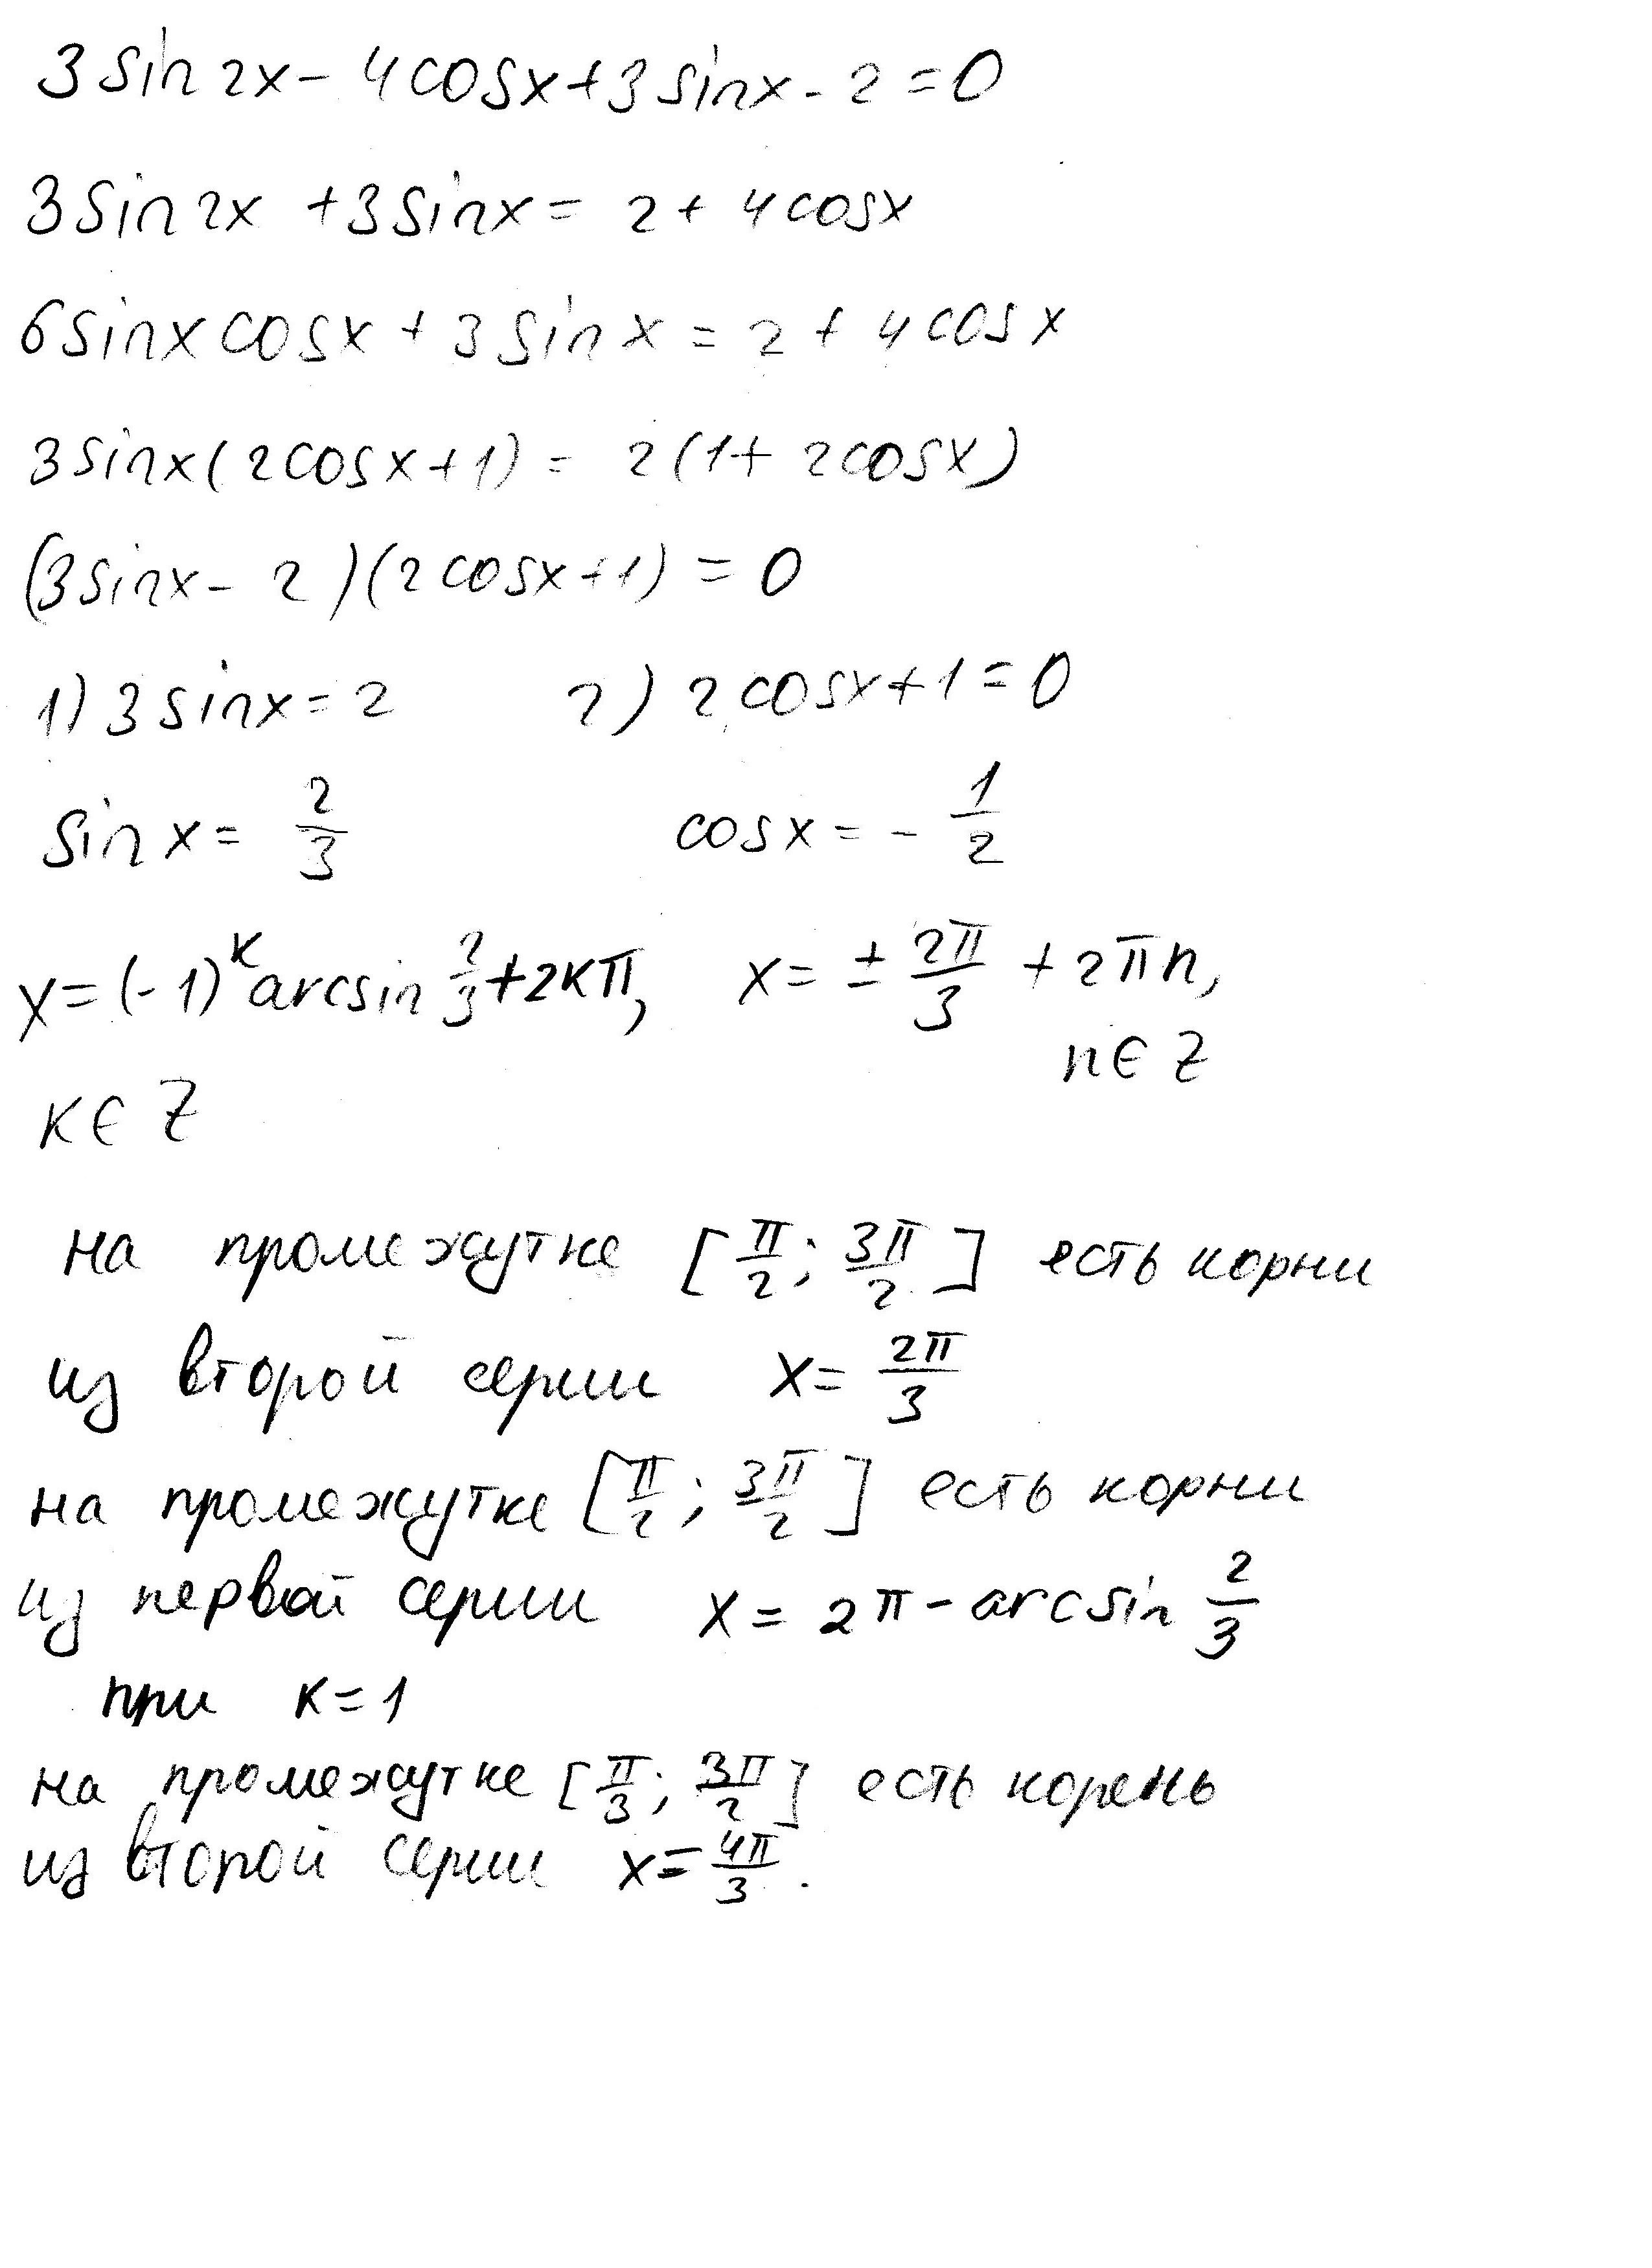 3sin2x - 4cosx + 3sinx - 2 = 0
3sin2x + 3sinx = 2 + 4cosx
6sinxcosx + 3sinx = 2 + 4cosx
3sinx(2cosx+1) = 2(1+2cosx)
(3sinx - 2)(2cosx+1) = 0
1) 3sinx = 2    2) 2cosx+1 = 0
sinx = 2/3    cosx = -1/2
x = (-1)^k arcsin 2/3 + 2kπ,    x = ± 2π/3 + 2πn,
n ∈ Z
k ∈ Z
на промежутке [π/2; 3π/2] есть корни
из второй серии x = 2π/3
на промежутке [π/2; 3π/2] есть корни
из первой серии x = 2π - arcsin 2/3
при k = 1
на промежутке [π/3; 3π/2] есть корень
из второй серии x = 4π/3.